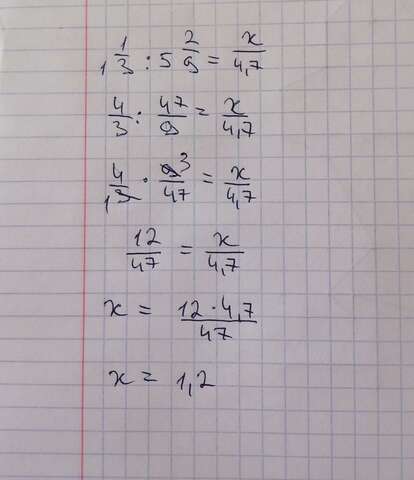 1 1/3 : 5 2/9 = x/4,7
4/3 : 47/9 = x/4,7
4/3 1 · 9/47 3 = x/4,7
12/47 = x/4,7
x = 12 · 4,7/47
x = 1,2